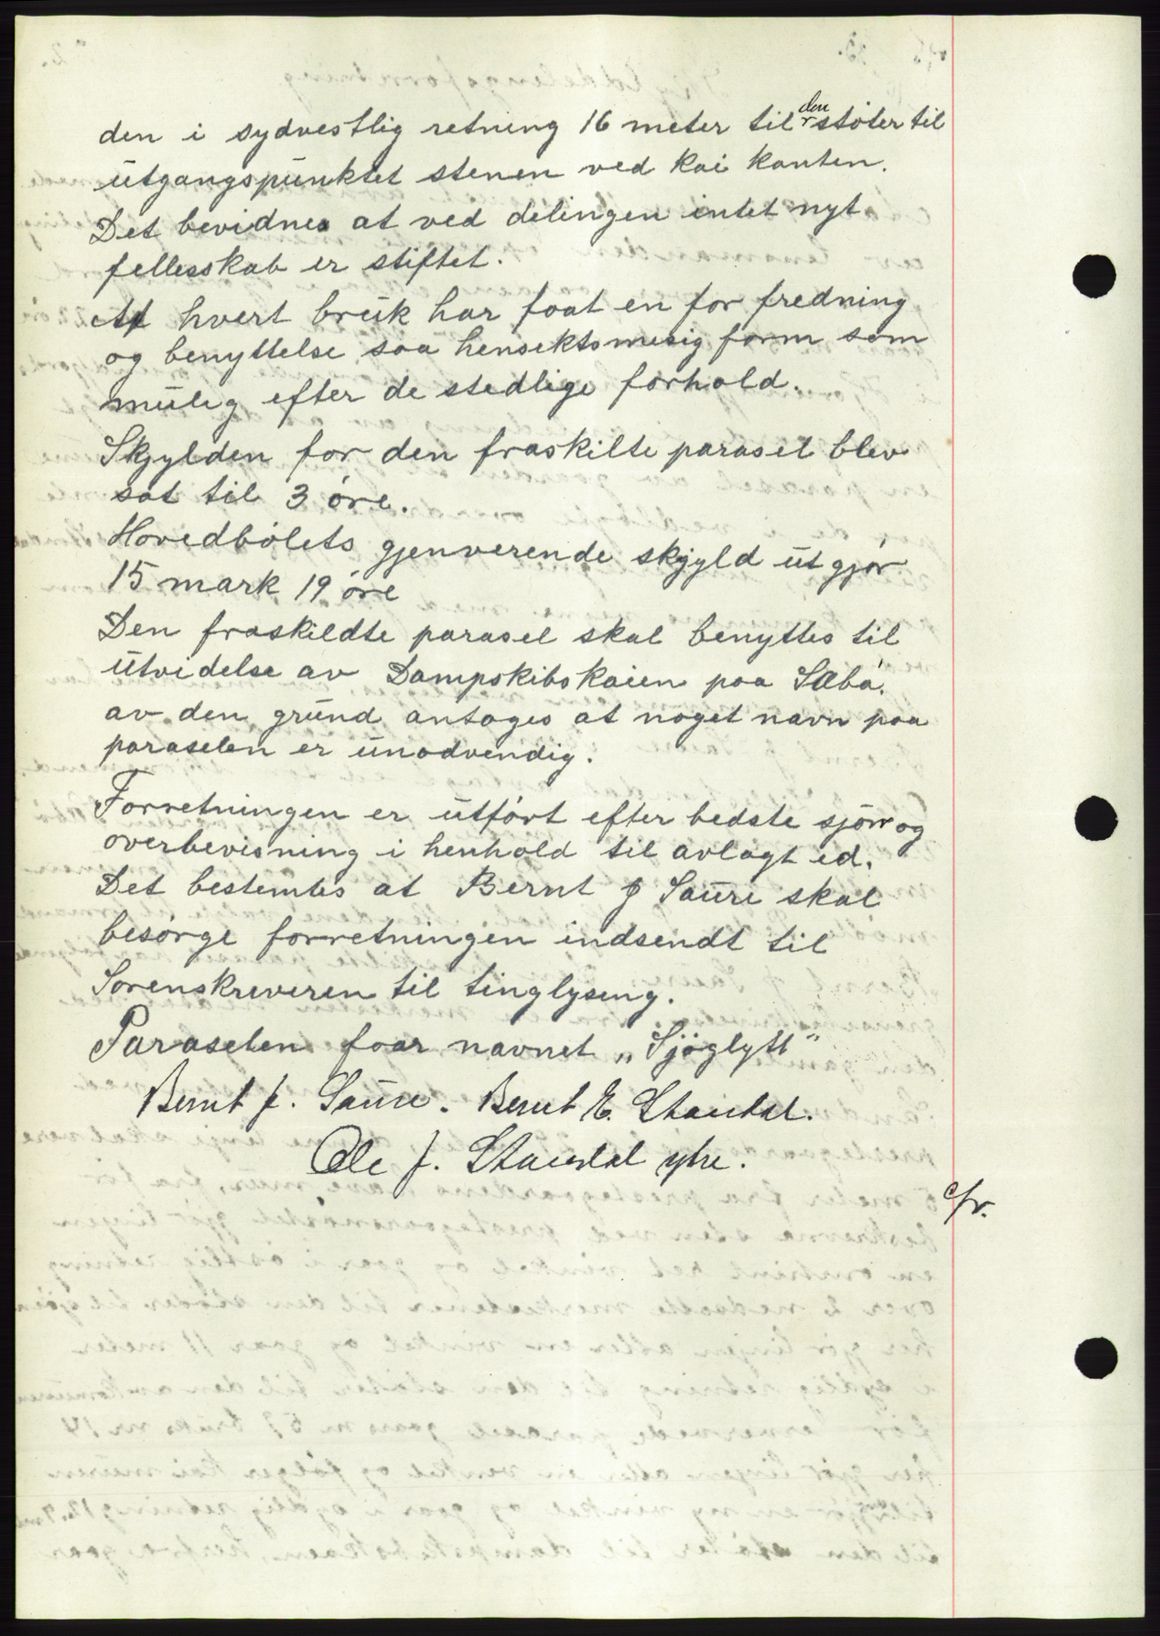 den i sydvestlig retning 16 meter til den støter til
utgangspunktet stenen ved kai kanten.
Det bevidnes at ved delingen intet nyt
fellesskab er stiftet.
At hvert bruk har faat en for fredning
og benyttelse saa hensiktsmesig form som
mulig efter de stedlige forhold.
Skjylden for den fraskilte parasel blev
sat til 3 øre.
Hovedbølets gjenverende skjyld utgjør
15 mark 19 øre
Den fraskildte parasel skal benyttes til
utvidelse av Dampskibskaien paa Sæbø.
av den grund antages at noget navn paa
paraselen er unødvendig.
Forretningen er utført efter bedste sjøn og
overbevisning i henhold til avlagt ed.
Det bestemtes at Bernt J Saure skal
besørge forretningen indsendt til
Sorenskreveren til tinglysing.
Paraselen faar navnet „Sjøglytt"
Bernt J. Saure. Bernt E. Standal.
Ole J. Standal ytre.